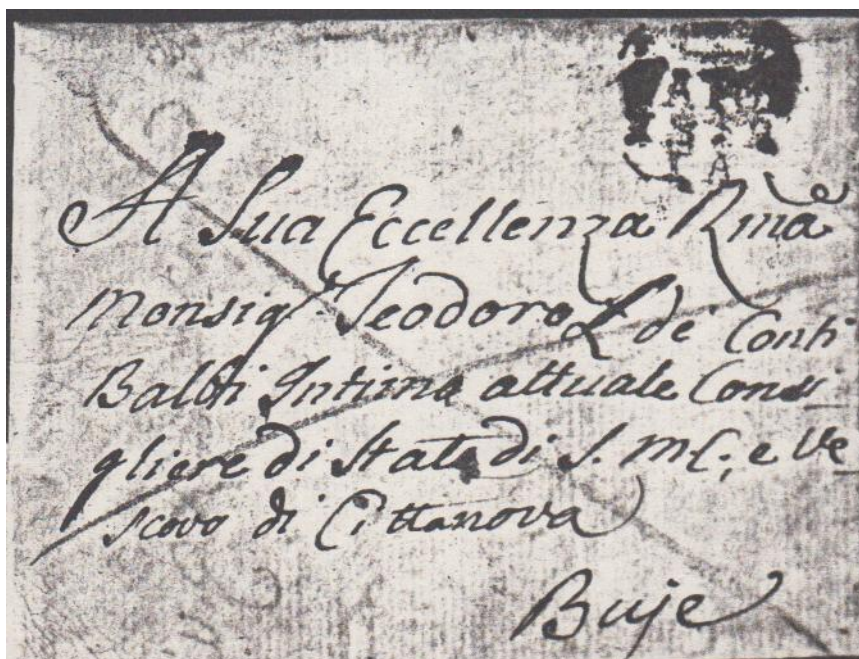 A Sua Eccellenza Rmã
Monsigr. Teodoro de Conti
Balbi Intimo attuale Consi
gliere di Stato di S. M. C.; e Ve
scovo di Cittanova
Buje